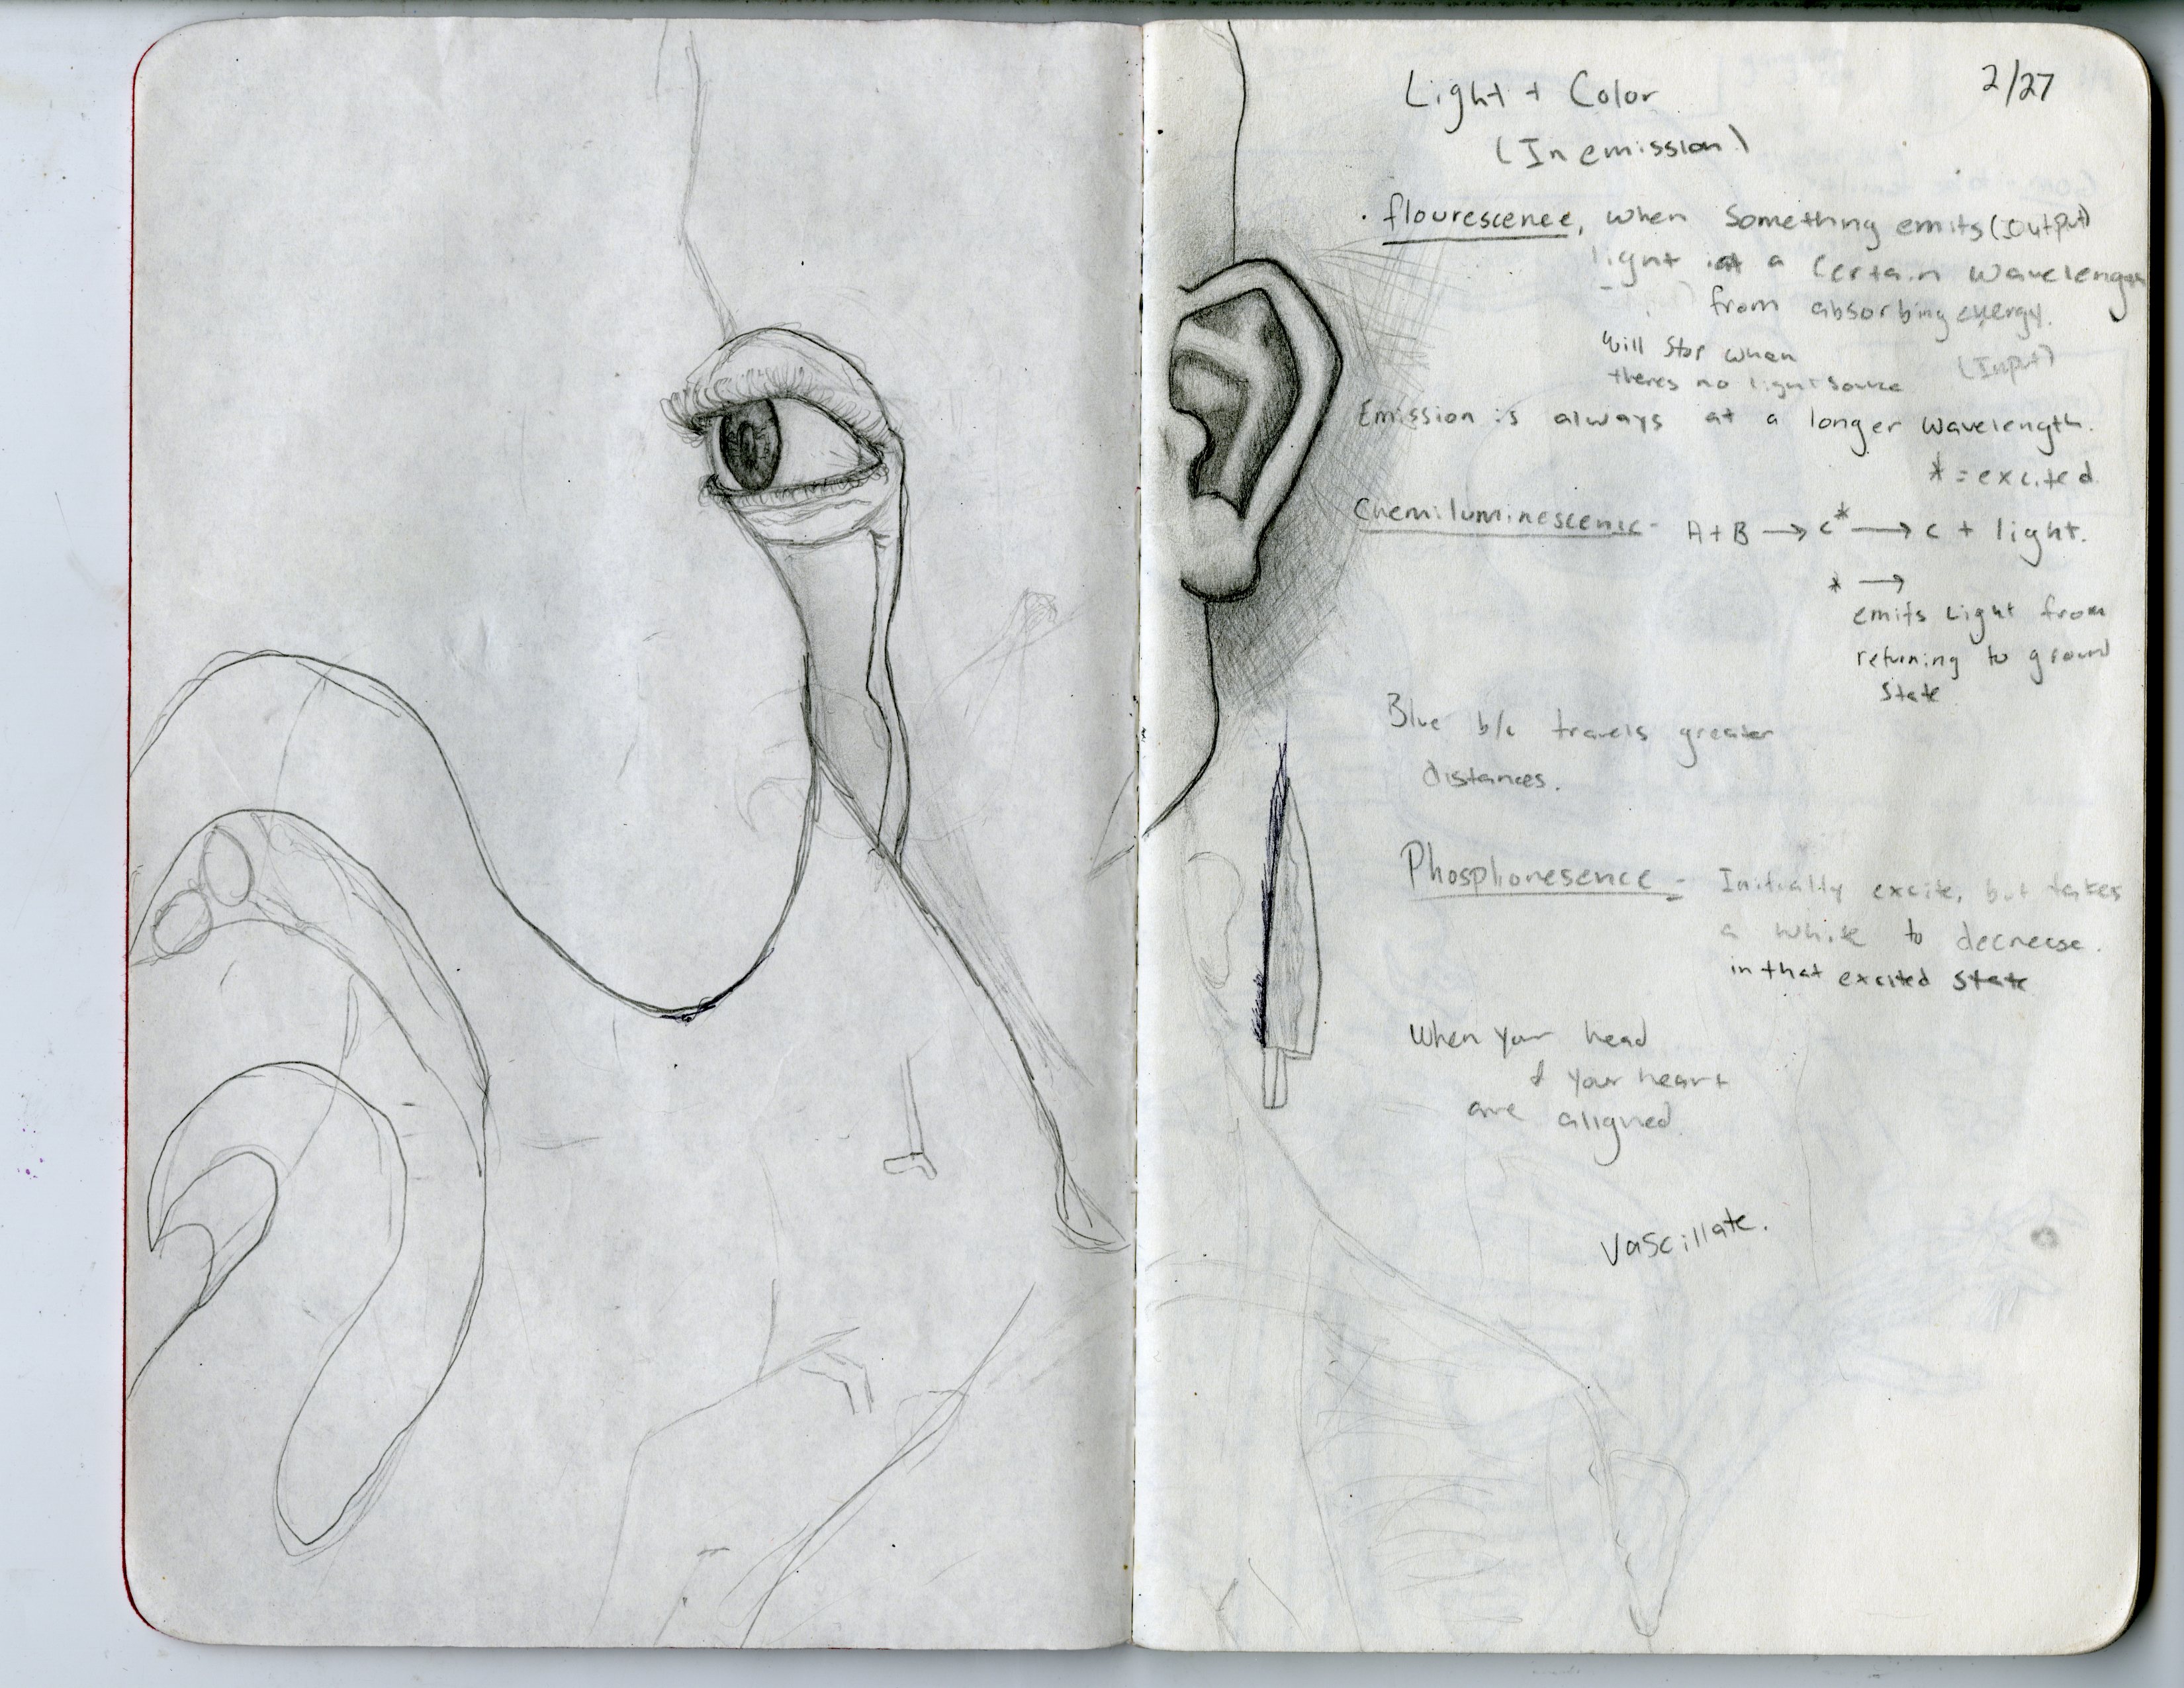 2/27
Light + Color
(In emission)
· flourescence, when something emits (output)
light at a certain wavelength
from absorbing energy.
will stop when (Input)
theres no light source
Emission is always at a longer wavelength.
* = excited
Chemiluminescence - A + B → c* → c + light.
* →
emits Light from
returning to ground
state
Blue b/c travels greater
distances.
Phosphoresence - Initially excite, but takes
a while to decrease.
in that excited state
When your head
& your heart
are aligned.
Vascillate.